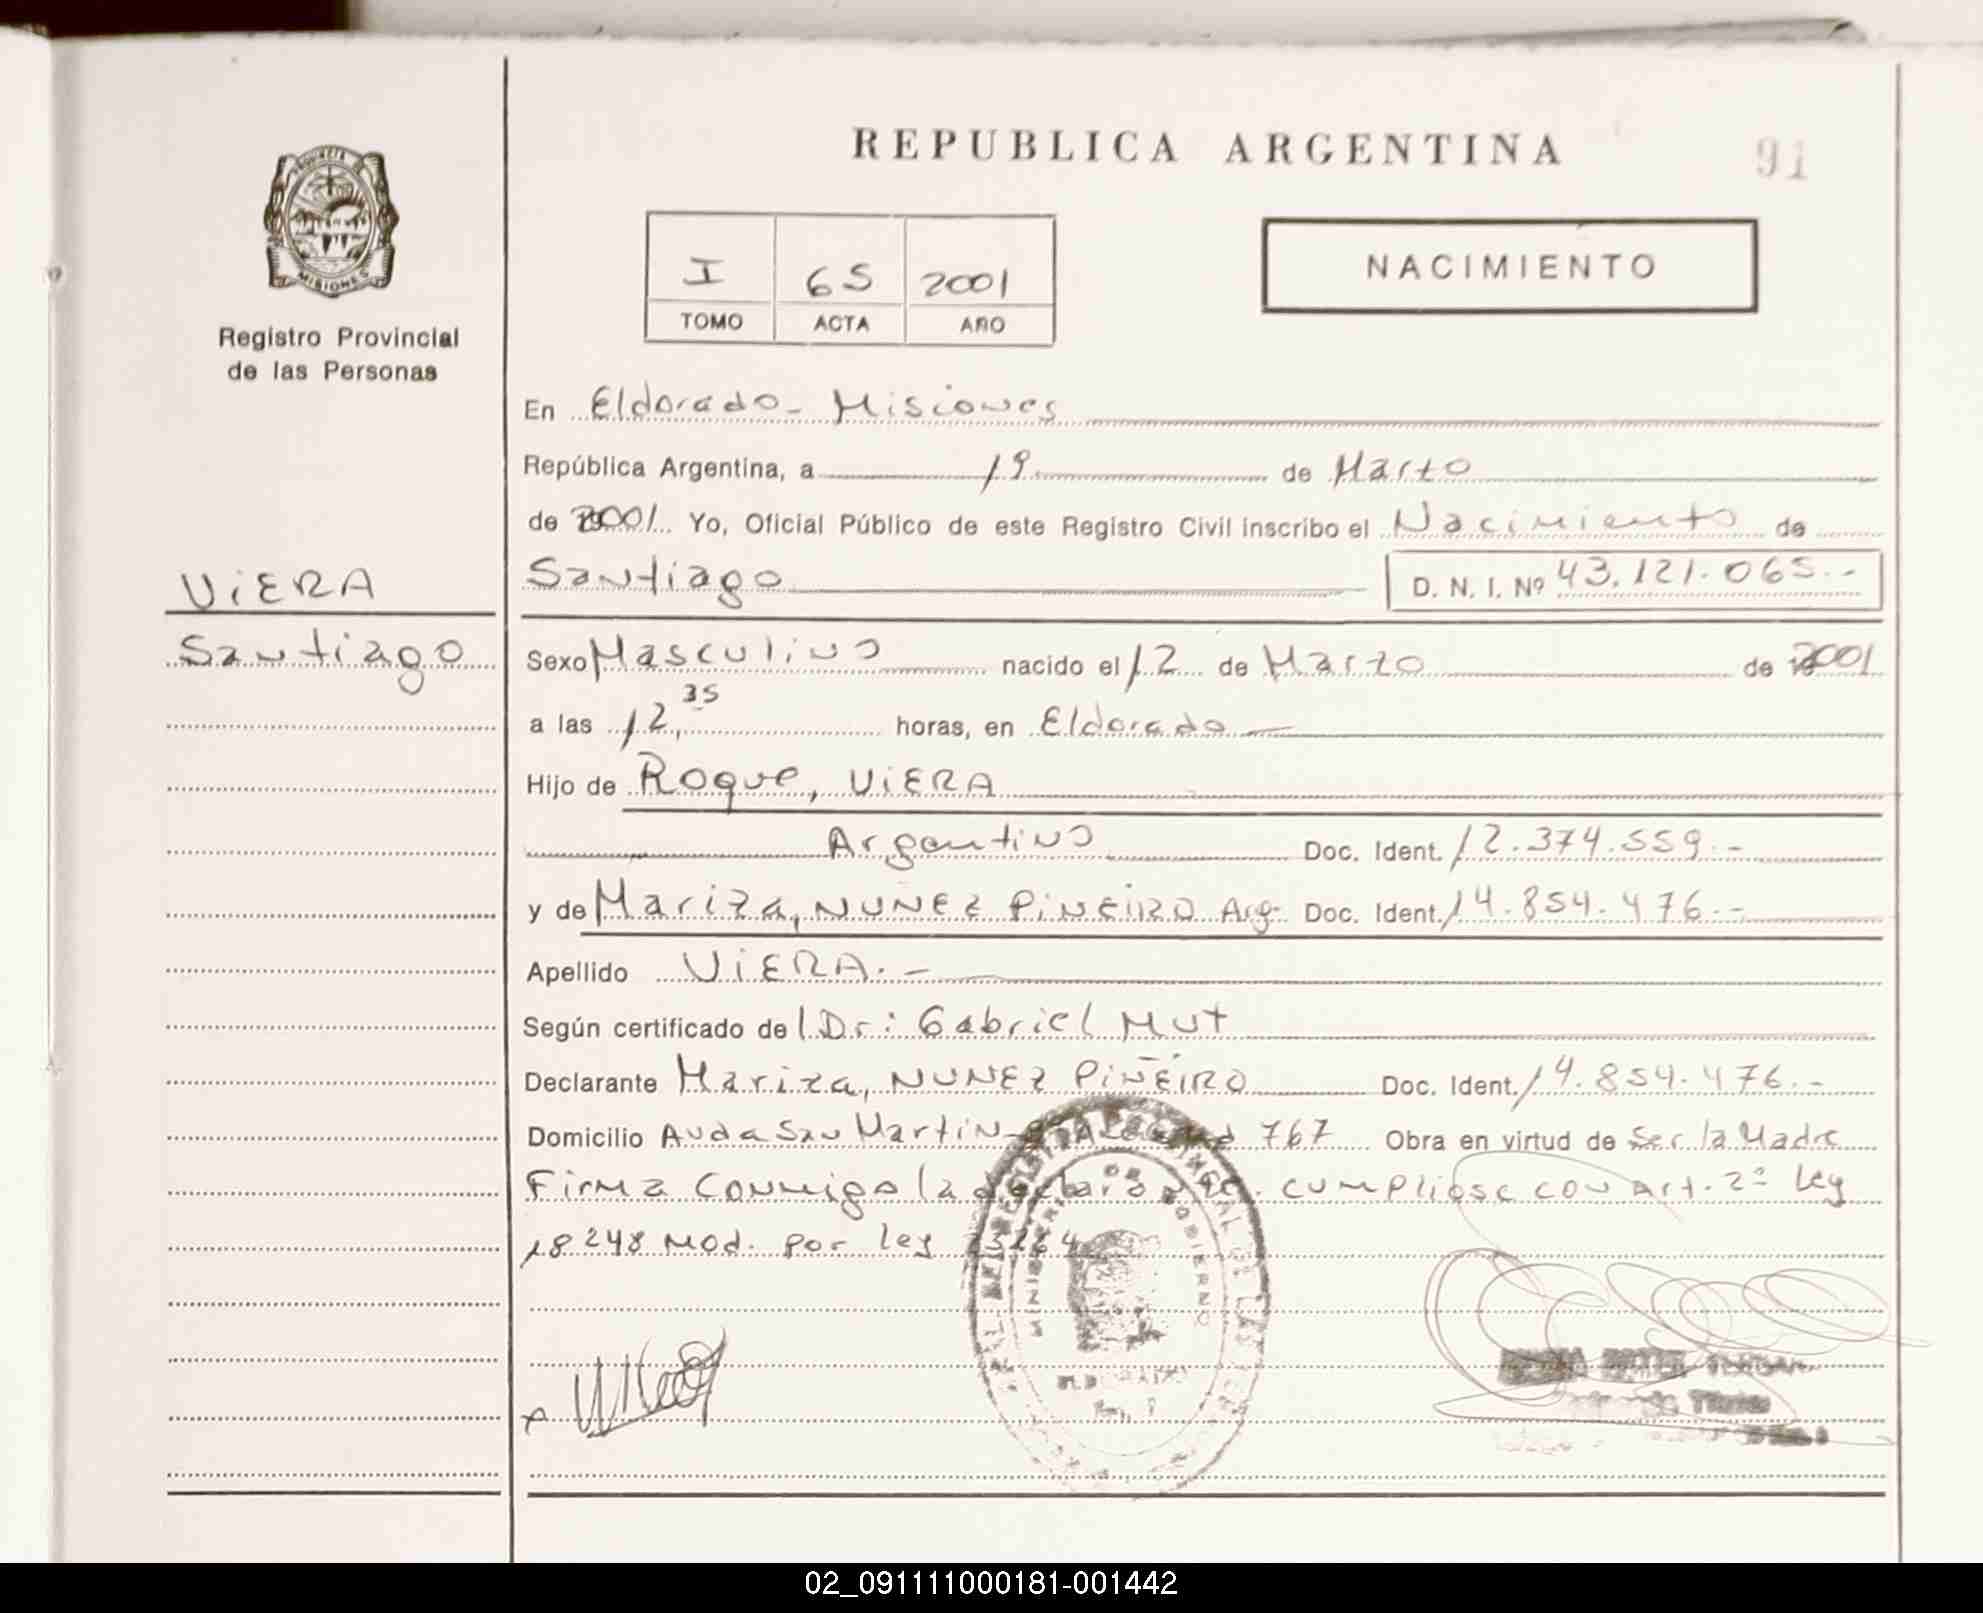 REPUBLICA ARGENTINA
91
PROVINCIA DE
MISIONES
Registro Provincial
de las Personas
I 65 2001
TOMO ACTA AÑO
NACIMIENTO
En Eldorado - Misiones
República Argentina, a 19 de Marzo
de 2001 Yo, Oficial Público de este Registro Civil inscribo el Nacimiento de
VIERA
Santiago D. N. I. Nº 43.121.065.-
Santiago
Sexo Masculino nacido el 12 de Marzo de 2001
a las 12,35 horas, en Eldorado
Hijo de Roque, VIERA
Argentino Doc. Ident. 12.374.559.-
y de Mariza, NUNEZ PIÑEIRO Arg- Doc. Ident. 14.854.476.-
Apellido VIERA.-
Según certificado de l Dr: Gabriel Mut
Declarante Mariza, NUNEZ PIÑEIRO Doc. Ident. 14.854.476.-
Domicilio Avda San Martin 767 Obra en virtud de Ser la Madre
Firma conmigo la cumpliose con Art. 2º Ley
18248 Mod. por ley
MINISTERIO DE GOBIERNO
02_091111000181-001442